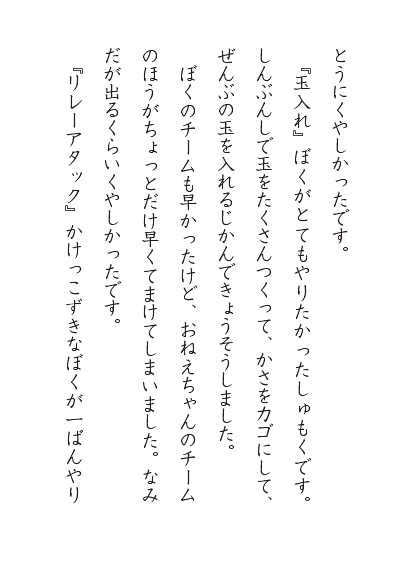 とうにくやしかったです。
『玉入れ』ぼくがとてもやりたかったしゅもくです。
しんぶんしで玉をたくさんつくって、かさをカゴにして、
ぜんぶの玉を入れるじかんできょうそうしました。
ぼくのチームも早かったけど、おねえちゃんのチーム
のほうがちょっとだけ早くてまけてしまいました。なみ
だが出るくらいくやしかったです。
『リレーアタック』かけっこずきなぼくが一ばんやり